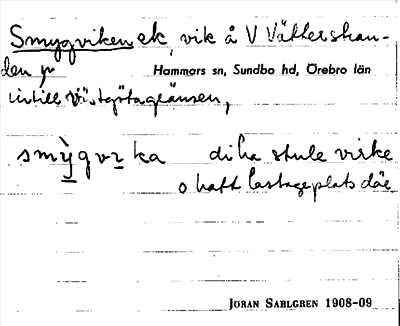 Smygviken ek, vik å V Vätterskan-
den på Hammars sn, Sundbo hd, Örebro län
intill Västgötagränsen,
smỳgvɪka di ha stule virke
o haft lastageplats däe
JÖRAN SAHLGREN 1908-09